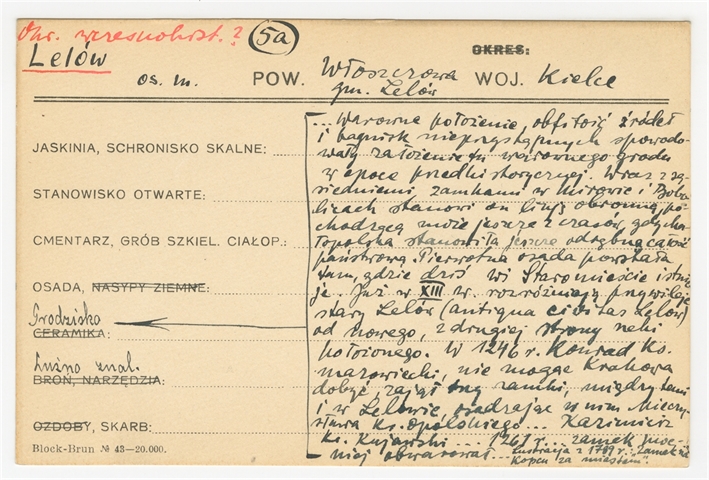 Okr. wczesnohist.?
5a
OKRES:
Lelów
os. m. POW. Włoszczowa WOJ. Kielce
gm. Lelów
JASKINIA, SCHRONISKO SKALNE:
STANOWISKO OTWARTE:
CMENTARZ, GRÓB SZKIEL. CIAŁOP.:
OSADA, NASYPY ZIEMNE:
Grodzisko
CERAMIKA:
Luźno znal.
BROŃ, NARZĘDZIA:
OZDOBY, SKARB:
Block-Brun № 43-20.000.
... Warowne położenie, obfitość źródeł
i bagnisk nieprzystępnych spowodo-
wały założenie tu warownego grodu
w epoce przedhistorycznej. Wraz z są-
siedniemi zamkami w Mirowie i Bobo-
licach stanowi on linję obronną, po-
chodzącą może jeszcze z czasów, gdy
stanowiła jeszcze odrębną całość
państwową. Pierwotna osada powstała
tam, gdzie dziś wś Staromieście istnie-
je. Już w XIII w. rozróżniają przywileje
stary Lelów (antiqua civitas Lelow)
od nowego, z drugiej strony rzeki
położonego. W 1246 r. Konrad Ks.
mazowiecki, nie mogąc Krakowa
dobyć, zajął zamki, między temi
i w Lelowie, osadzając w nim Mieczy-
sława Ks. Opolskiego... Kazimierz
Ks. Kujawski ... 1261 r... zamek
niej obwarował...
Lustracja z 1789 r.: "Zamek
Kopeu za miastem".